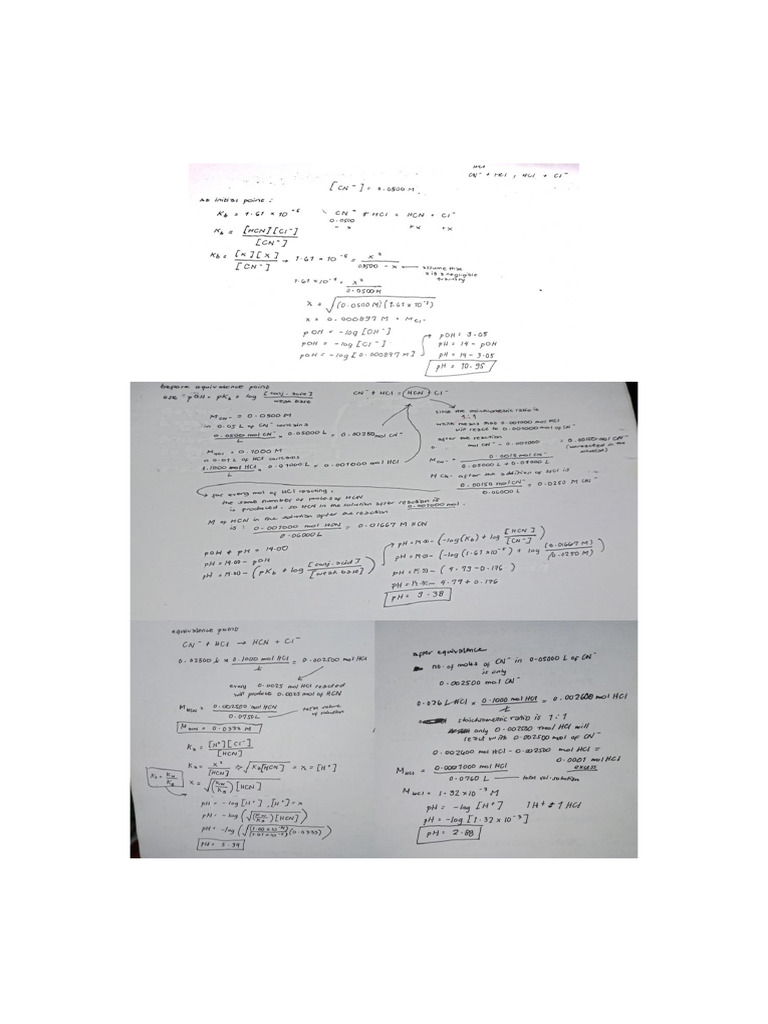 HCl
CN⁻ + HCl , HCl + Cl⁻
[CN⁻] = 0.0500 M
At initial point:
Kb = 1.61 × 10⁻⁵
CN⁻ + HCl = HCN + Cl⁻
0.0500
- x +x +x
Kb = [HCN][Cl⁻] / [CN⁻]
Kb = [x][x] / [CN⁻] → 1.61 × 10⁻⁵ = x² / 0.0500 - x
assume
x is negligible
1.61 × 10⁻⁵ = x² / 0.0500 M
x = √(0.0500 M)(1.61 × 10⁻⁵)
x = 0.000897 M = M Cl⁻
pOH = -log [OH⁻]
pOH = -log [Cl⁻]
pOH = -log [0.000897 M]
pOH = 3.05
pH = 14 - pOH
pH = 14 - 3.05
pH = 10.95
before equivalence point
use pOH = pKb + log [conj. acid] / weak base
CN⁻ + HCl = HCN + Cl⁻
M CN⁻ = 0.0500 M
in 0.05 L of CN⁻ contains
0.0500 mol CN⁻ / L × 0.05000 L = 0.00250 mol CN⁻
M HCl = 0.1000 M
in 0.01 L of HCl contains
0.1000 mol HCl / L × 0.01000 L = 0.001000 mol HCl
since the stoichiometric ratio is
1:1
which means that 0.001000 mol HCl
will react to 0.001000 mol of CN⁻
after the reaction
mol CN⁻ - 0.001000 = 0.00150 mol CN⁻
(unreacted in the
M CN⁻ = 0.0015 mol CN⁻ / 0.05000 L + 0.01000 L
M CN⁻ after the addition of HCl is
0.00150 mol CN⁻ / 0.06000 L = 0.0250 M CN⁻
for every mol of HCl reacting,
the same number of moles of HCN
is produced. so HCN in the solution after reaction is
0.001000 mol.
M of HCN in the solution after the reaction
is : 0.001000 mol HCN / 0.06000 L = 0.01667 M HCN
pOH + pH = 14.00
pH = 14.00 - pOH
pH = 14.00 - (pKb + log [conj. acid] / [weak base])
pH = 14.00 - (-log(Kb) + log [HCN] / [CN⁻])
pH = 14.00 - (-log (1.61 × 10⁻⁵) + log (0.01667 M) / (0.0250 M)
pH = 14.00 - (4.79 - 0.176)
pH = 14.00 - 4.79 + 0.176
pH = 9.38
equivalence point
CN⁻ + HCl → HCN + Cl⁻
0.02500 L × 0.1000 mol HCl / L = 0.002500 mol HCl
every 0.0025 mol HCl reacted
will produce 0.0025 mol of HCN
M HCN = 0.002500 mol HCN / 0.0750 L
total volume
of solution
M HCN = 0.0333 M
Ka = [H⁺][Cl⁻] / [HCN]
Ka = x² / [HCN] ⇒ √Ka[HCN] = x = [H⁺]
Ka = Kw / Kb
x = √(Kw / Kb) [HCN]
pH = -log [H⁺] , [H⁺] = x
pH = -log (√(Kw / Kb) [HCN])
pH = -log (√(1.00 × 10⁻¹⁴ / 1.61 × 10⁻⁵) (0.0333))
pH = 5.34
after equivalence
no. of moles of CN⁻ in 0.05000 L of CN⁻
is only
0.002500 mol CN⁻
0.026 L HCl × 0.1000 mol HCl / L = 0.002600 mol HCl
stoichiometric ratio is 1:1
only 0.002500 mol HCl will
react with 0.002500 mol of CN⁻
0.002600 mol HCl - 0.002500 mol HCl =
0.0001 mol HCl
excess
M HCl = 0.0001000 mol HCl / 0.0760 L
total vol. solution
M HCl = 1.32 × 10⁻³ M
pH = -log [H⁺] 1 H⁺ = 1 HCl
pH = -log [1.32 × 10⁻³]
pH = 2.88